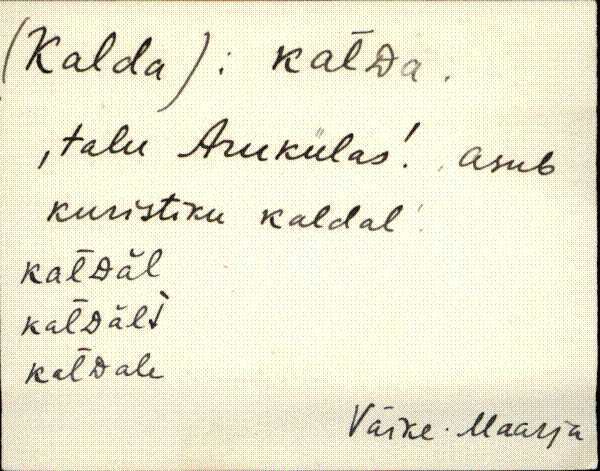 (Kalda): kal̄Da.
‚talu Arukülas! asub
kuristiku kaldal!
kal̄Dăl
kal̄Dălt
kal̄Dale
Väike-Maarja